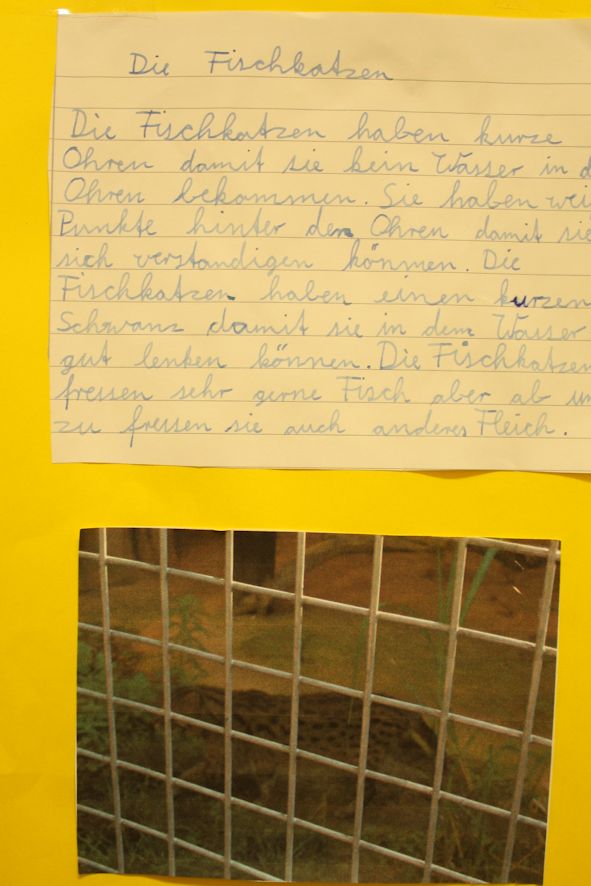 Die Fischkatzen
Die Fischkatzen haben kurze
Ohren damit sie kein Wasser in d
Ohren bekommen. Sie haben wei
Punkte hinter den Ohren damit sie
sich verständigen können. Die
Fischkatzen haben einen kurzen
Schwanz damit sie in dem Wasser
gut lenken können. Die Fischkatzen
fressen sehr gerne Fisch aber ab un
zu fressen sie auch anderes Fleich.